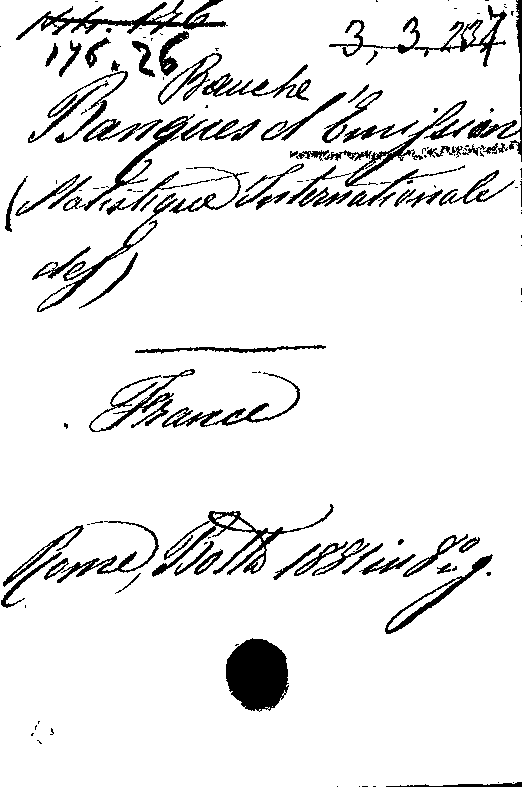 176.26
3, 3, 237
Bouche
Banques d'Emission
(Statistique Internationale
des)
France
Rome, Botta 1881 in 8º g.